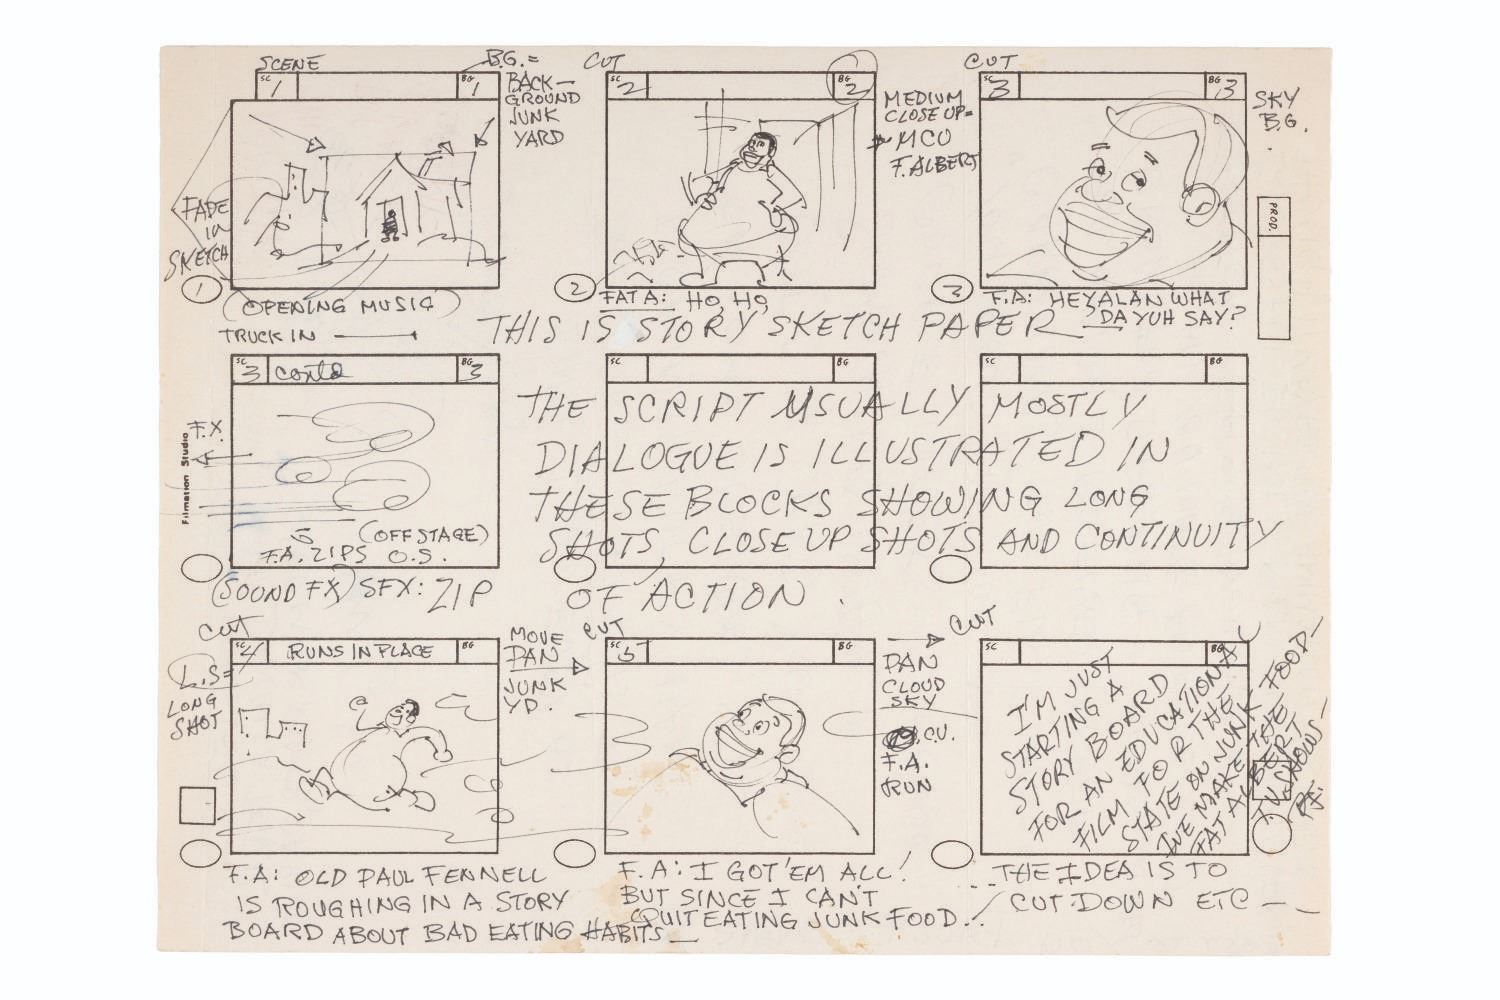 SCENE
SC 1
BG 1
B.G. =
BACK-
GROUND
JUNK
YARD
FADE
IN
SKETCH
1
(OPENING MUSIC)
TRUCK IN
CUT
SC 2
BG 2
MEDIUM
CLOSE UP=
MCU
F. ALBERT
2
FAT A: HO, HO,
CUT
SC 3
BG 3
SKY
B.G.
PROD.
3
F.A: HEY ALAN WHAT
DA YUH SAY?
THIS IS STORY SKETCH PAPER
SC 3 contd
BG 3
F.X.
Filmation Studio
(OFF STAGE)
F.A. ZIPS O.S.
(SOUND FX) SFX: ZIP
SC
BG
SC
BG
THE SCRIPT USUALLY MOSTLY
DIALOGUE IS ILLUSTRATED IN
THESE BLOCKS SHOWING LONG
SHOTS, CLOSE UP SHOTS AND CONTINUITY
OF ACTION.
CUT
SC 4 RUNS IN PLACE
BG
L.S=
LONG
SHOT
MOVE
PAN
JUNK
YD.
F.A: OLD PAUL FENNELL
IS ROUGHING IN A STORY
BOARD ABOUT BAD EATING HABITS—
CUT
SC 5
BG
PAN
CLOUD
SKY
C.U.
F.A.
RUN
F.A: I GOT 'EM ALL!
BUT SINCE I CAN'T
QUIT EATING JUNK FOOD..
CUT
SC
BG
I'M JUST
STARTING A
STORY BOARD
FOR AN EDUCATIONAL
FILM FOR THE
STATE ON JUNK FOOD—
WE MAKE THE
FAT ALBERT
TV SHOWS—
P.F.
...THE IDEA IS TO
CUT DOWN ETC——